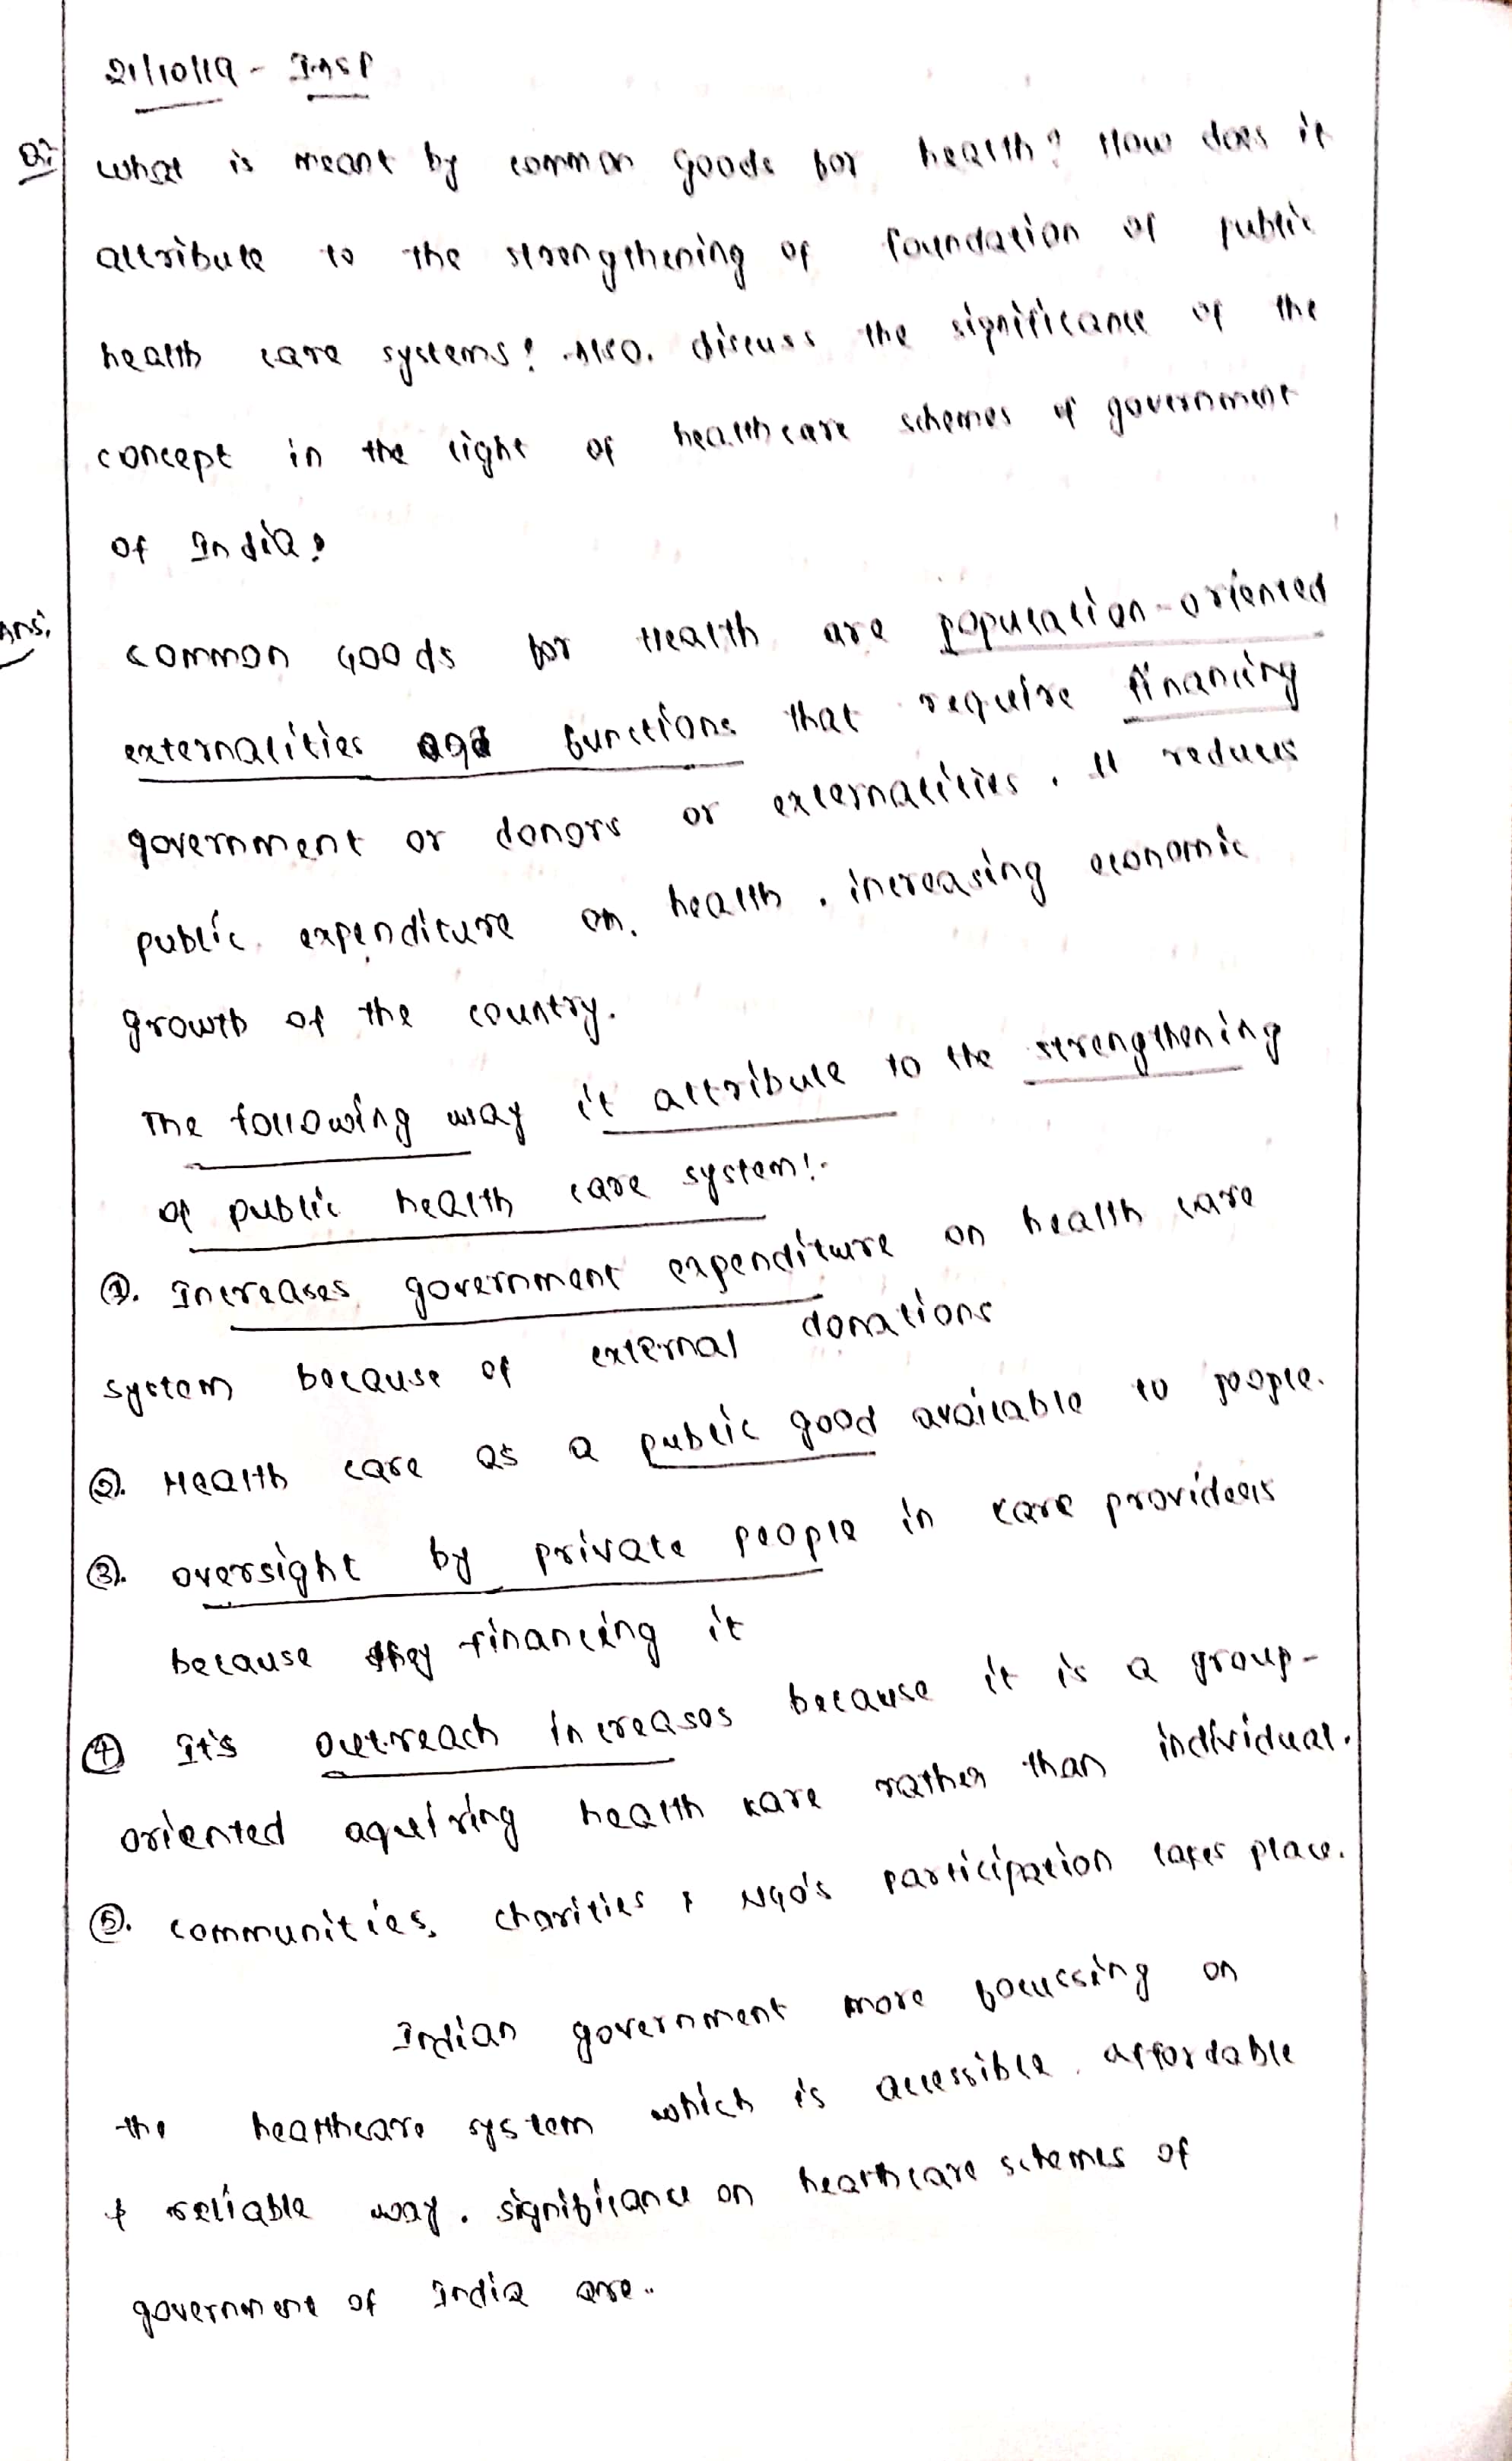 21/10/19 - INSP
Q:
What is meant by common goods for health? How does it
attribute to the strengthening of foundation of public
health care systems? Also. discuss the significance of the
concept in the light of healthcare schemes of government
of India?
Ans:
Common Goods for Health are population-oriented
externalities and functions that require financing
government or donors or externalities. It reduces
public expenditure on health, increasing economic
growth of the country.
The following way it attribute to the strengthening
of public health care system:-
①. Increases government expenditure on health care
system because of external donations
②. Health care as a public good available to people.
③. oversight by private people in care provideers
because they financing it
④ It's outreach increases because it is a group-
oriented aquiring health care rather than individual.
⑤. communities, charities & NGO's participation takes place.
Indian government more focussing on
the healthcare system which is accessible, affordable
& reliable way. significance on healthcare schemes of
government of India are..